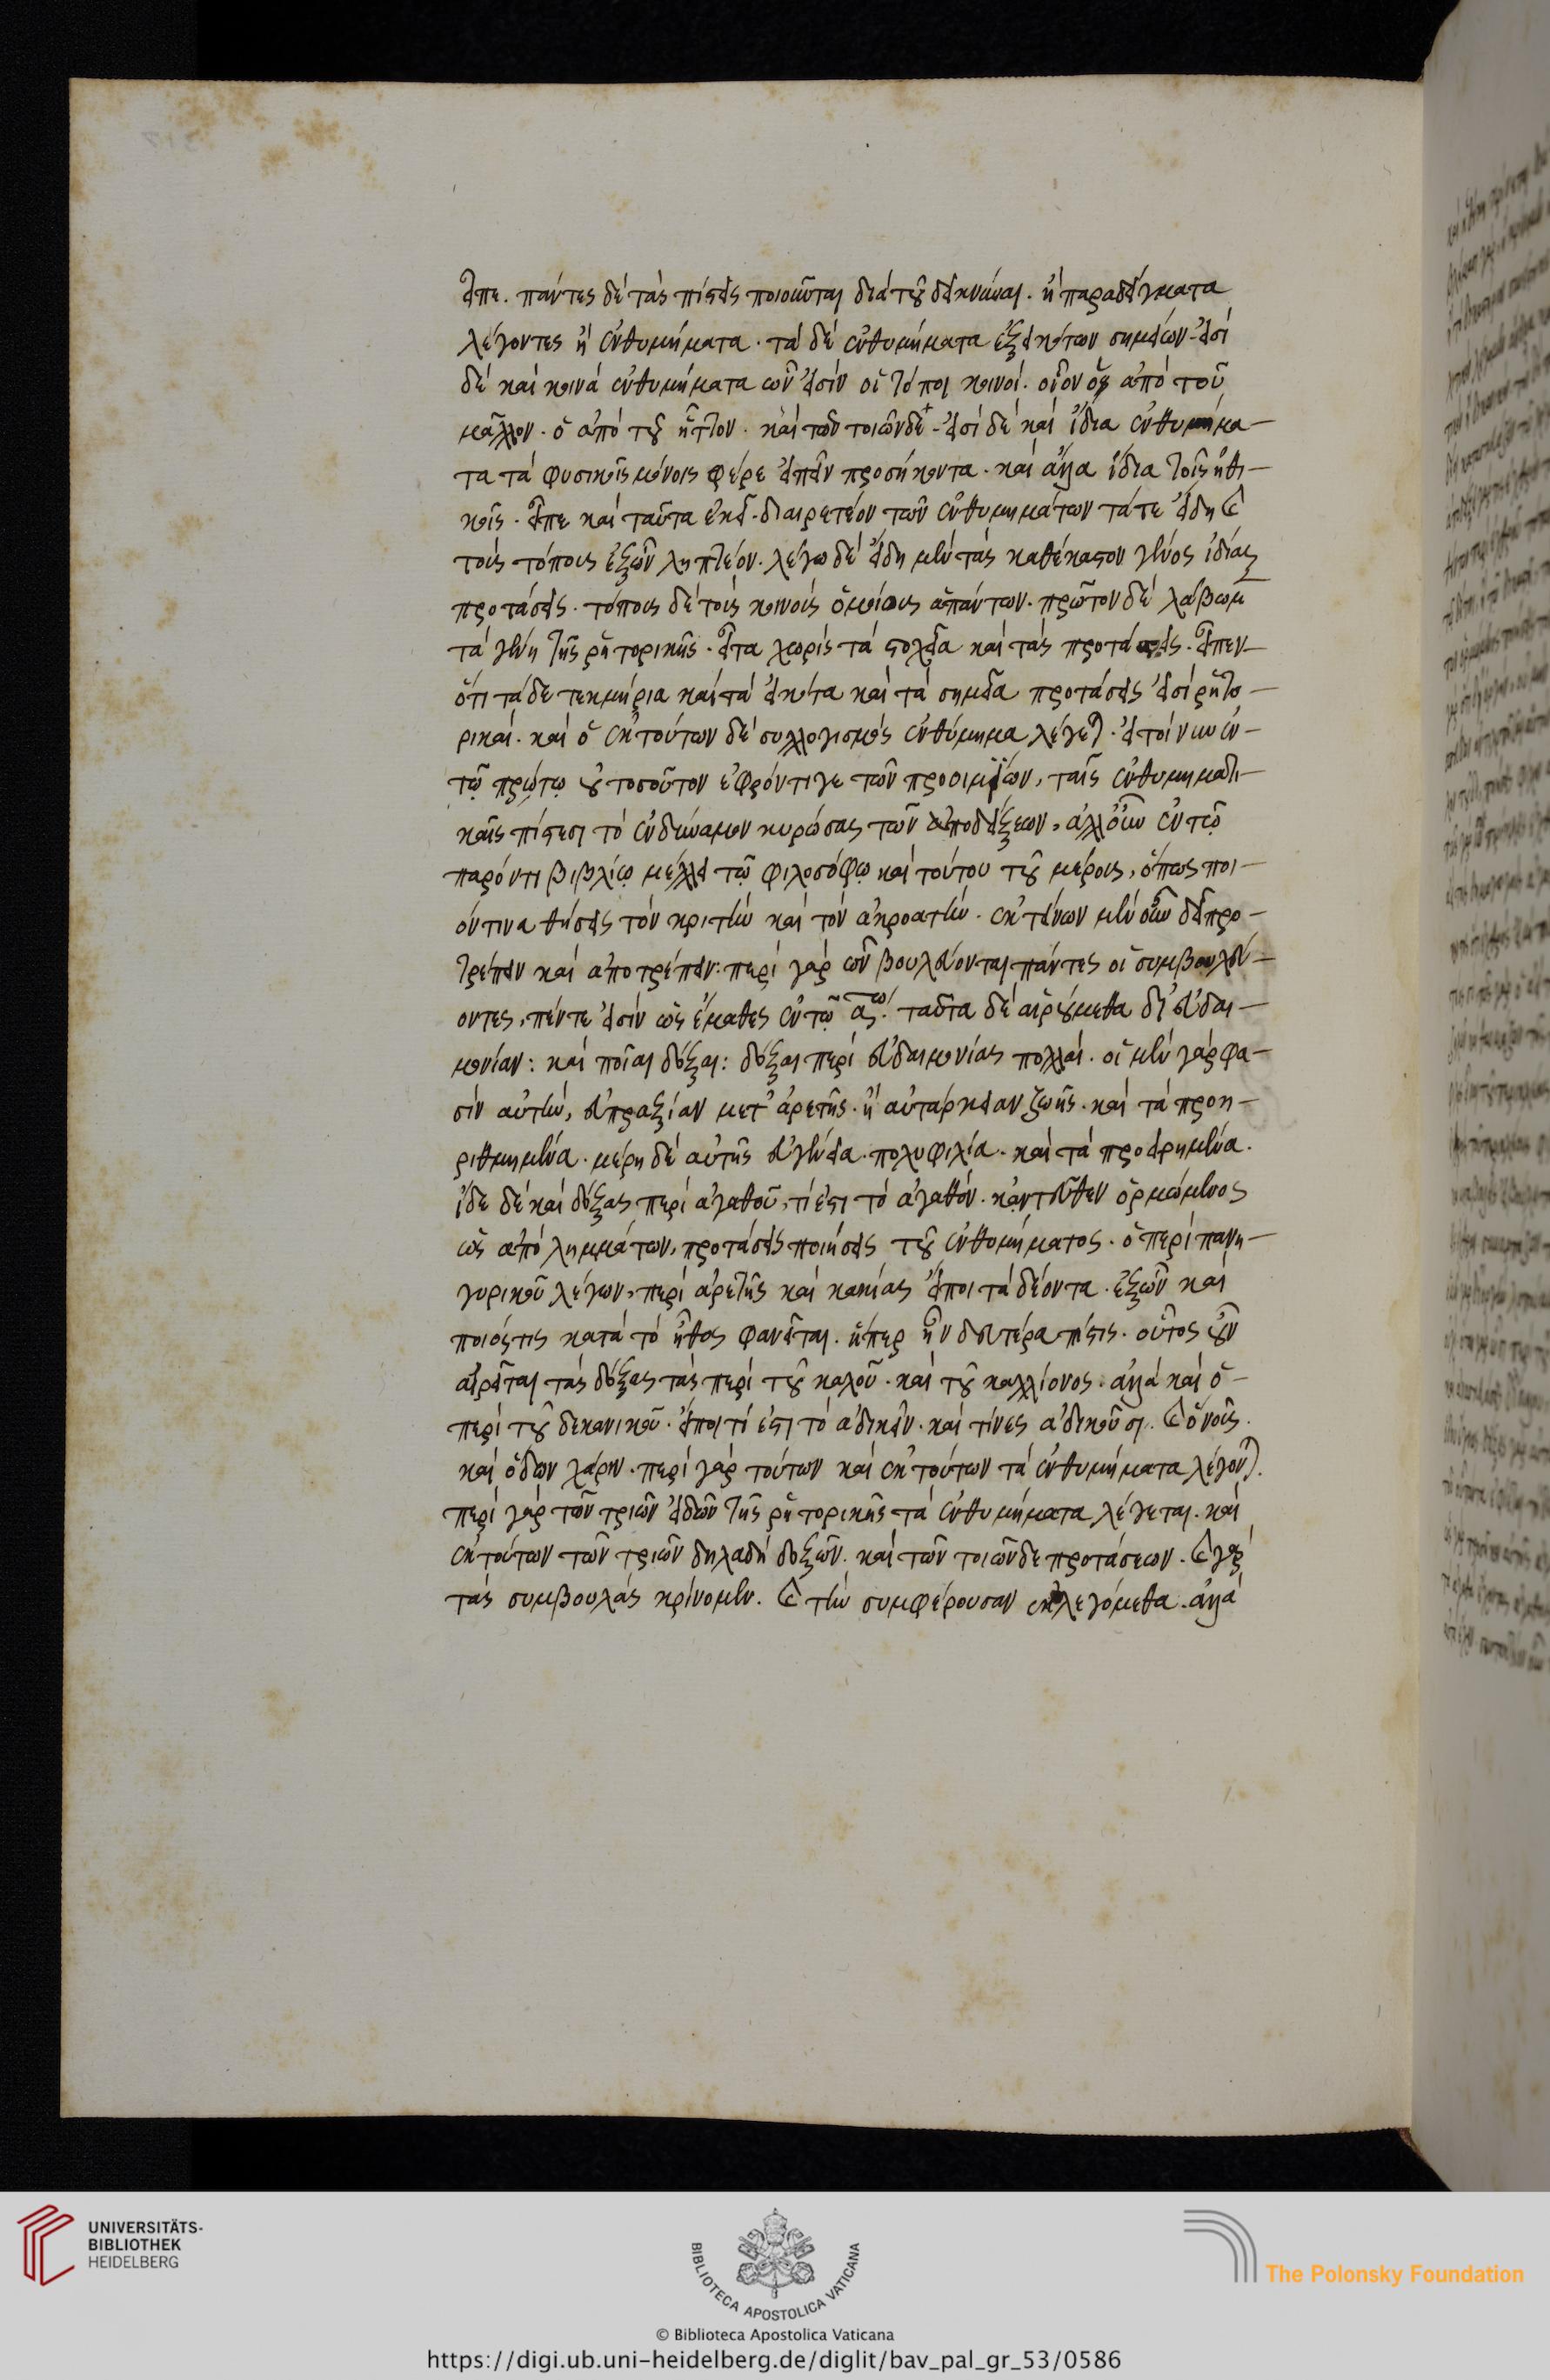 εἶπε. πάντες δὲ τὰς πίστεις ποιοῦνται διὰ τοῦ δεικνύναι. ἢ παραδείγματα
λέγοντες ἢ ἐνθυμήματα. τὰ δὲ ἐνθυμήματα ἐξ εἰκότων σημείων. εἰσὶ
δὲ καὶ κοινὰ ἐνθυμήματα ὧν εἰσὶν οἱ τόποι κοινοί. οἷον ὁ ἀπὸ τοῦ
μᾶλλον. ὁ ἀπὸ τοῦ ἧττον. καὶ τῶν τοιῶνδε. εἰσὶ δὲ καὶ ἴδια ἐνθυμήμα-
τα τὰ φυσικοῖς μόνοις φέρε εἰπεῖν προσήκοντα. καὶ ἄλλα ἴδια τοῖς ἠθι-
κοῖς. εἶπε καὶ ταῦτα ἐκεῖ. διαιρετέον τῶν ἐνθυμημάτων τά τε εἴδη καὶ
τοὺς τόπους ἐξ ὧν ληπτέον. λέγω δὲ εἴδη μὲν τὰς καθ' ἕκαστον γένος ἰδίας
προτάσεις. τόπους δὲ τοὺς κοινοὺς ὁμοίως ἁπάντων. πρῶτον δὲ λάβωμεν
τὰ γένη τῆς ῥητορικῆς. εἶτα χωρὶς τὰ στοιχεῖα καὶ τὰς προτάσεις. εἶπεν
ὅτι τάδε τεκμήρια καὶ τὰ εἰκότα καὶ τὰ σημεῖα προτάσεις εἰσὶ ῥητο-
ρικαί. καὶ ὁ ἐκ τούτων δὲ συλλογισμὸς ἐνθύμημα λέγεται. εἰ τοίνυν ἐν
τῷ πρώτῳ οὐ τοσοῦτον ἐφρόντιζε τῶν προοιμίων, ταῖς ἐνθυμηματι-
καῖς πίστεσι τὸ ἐνδυνάμον κυρώσας τῶν ἀποδείξεων, ἀλλ' οὖν ἐν τῷ
παρόντι βιβλίῳ μέλλει τῷ φιλοσόφῳ καὶ τούτου τοῦ μέρους, ὅπως ποι-
όν τινα θήσεις τὸν κριτὴν καὶ τὸν ἀκροατήν. ἐκ τίνων μὲν οὖν δεῖ προ-
τρέπειν καὶ ἀποτρέπειν: περὶ γὰρ ὧν βουλεύονται πάντες οἱ συμβουλεύ-
οντες, πέντε εἰσὶν ὡς ἔμαθες ἐν τῷ αῳ. ταῦτα δὲ αἱρούμεθα δι' εὐδαι-
μονίαν: καὶ ποῖαι δόξαι: δόξαι περὶ εὐδαιμονίας πολλαί. οἱ μὲν γάρ φα-
σιν αὐτήν, εὐπραξίαν μετ' ἀρετῆς. ἢ αὐτάρκειαν ζωῆς. καὶ τὰ προη-
ριθμημένα. μέρη δὲ αὐτῆς εὐγένεια. πολυφιλία. καὶ τὰ προειρημένα.
ἴδε δὲ καὶ δόξας περὶ ἀγαθοῦ, τί ἐστι τὸ ἀγαθόν. κἀντεῦθεν ὁρμώμενος
ὡς ἀπὸ λημμάτων, προτάσεις ποιήσεις τοῦ ἐνθυμήματος. ὁ περὶ πανη-
γυρικοῦ λέγων, περὶ ἀρετῆς καὶ κακίας εἴποι τὰ δέοντα. ἐξ ὧν καὶ
ποιός τις κατὰ τὸ ἦθος φανεῖται. ἥπερ ἦν δευτέρα πίστις. οὗτος οὖν
αἱρεῖται τὰς δόξας τὰς περὶ τοῦ καλοῦ. καὶ τοῦ καλλίονος. ἀλλὰ καὶ ὁ
περὶ τοῦ δικανικοῦ. εἴποι τί ἐστι τὸ ἀδικεῖν. καὶ τίνες ἀδικοῦσι. καὶ οὓς.
καὶ ὅδων χάριν. περὶ γὰρ τούτων καὶ ἐκ τούτων τὰ ἐνθυμήματα λέγονται.
περὶ γὰρ τῶν τριῶν εἰδῶν τῆς ῥητορικῆς τὰ ἐνθυμήματα λέγεται. καὶ
ἐκ τούτων τῶν τριῶν δηλαδὴ δοξῶν. καὶ τῶν τοιῶνδε προτάσεων. καὶ γὰρ
τὰς συμβουλὰς κρίνομεν. καὶ τὴν συμφέρουσαν ἐκλεγόμεθα. ἀλλὰ
UNIVERSITÄTS-
BIBLIOTHEK
HEIDELBERG
BIBLIOTECA APOSTOLICA VATICANA
The Polonsky Foundation
© Biblioteca Apostolica Vaticana
https://digi.ub.uni-heidelberg.de/diglit/bav_pal_gr_53/0586